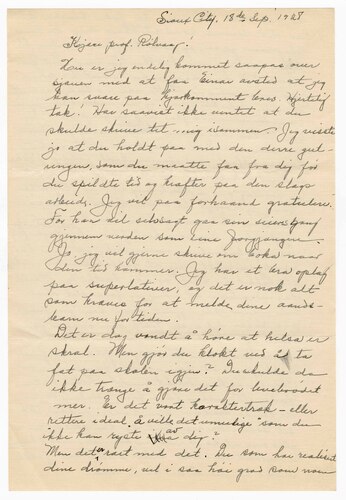 Sioux City, 18de Sep. 1928
Kjære prof. Rölvaag!
Nu er jeg endelig kommet saapas over
sjauen med at faa Einar avsted at jeg
kan svare paa kjærkomment brev. Hjertelig
tak! Har saavist ikke ventet at du
skulde skrive til mig sommer. Jeg visste
jo at du holdt paa med den derre gut-
ungen, som du maatte faa fra dig før
du spildte tid og krafter paa den slags
arbeide. Jeg vil paa forhaand gratulere.
For han vil selvsagt gaa sin seiersgang
gjennem verden som sine forgjængere.
Jo jeg vil gjerne skrive om boka naar
den tid kommer. Jeg har et bra oplag
paa superlativer, og det er nok alt
som kræves for at melde dine aands-
barn nu for tiden.
Det er dog vondt å høre at helsa er
skral. Men gjør du klokt ved å ta
fat paa skolen igjen? Du skulde da
ikke trænge å gjøre det for levebrødet
mer. Er det vort karaktertræk - eller
rettere ideal, å ville det umulige som du
ikke kan ryste av dig?
Men det er rart med det. Du som har realisert
dine drømme, vel i saa høi grad som noen